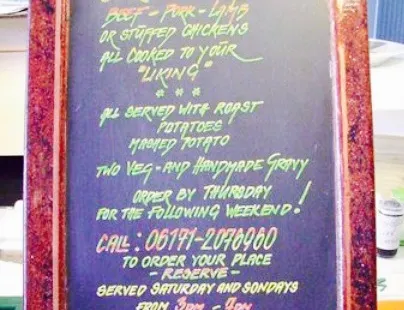 BEEF - PORK - LAMB
OR STUFFED CHICKENS
ALL COOKED TO YOUR
"LIKING"
* * *
ALL SERVED WITH ROAST
POTATOES
MASHED POTATO
TWO VEG - AND HANDMADE GRAVY
ORDER BY THURSDAY
FOR THE FOLLOWING WEEKEND!
CALL: 06171-2076960
TO ORDER YOUR PLACE
- RESERVE -
SERVED SATURDAY AND SONDAYS
FROM 3PM - 7PM